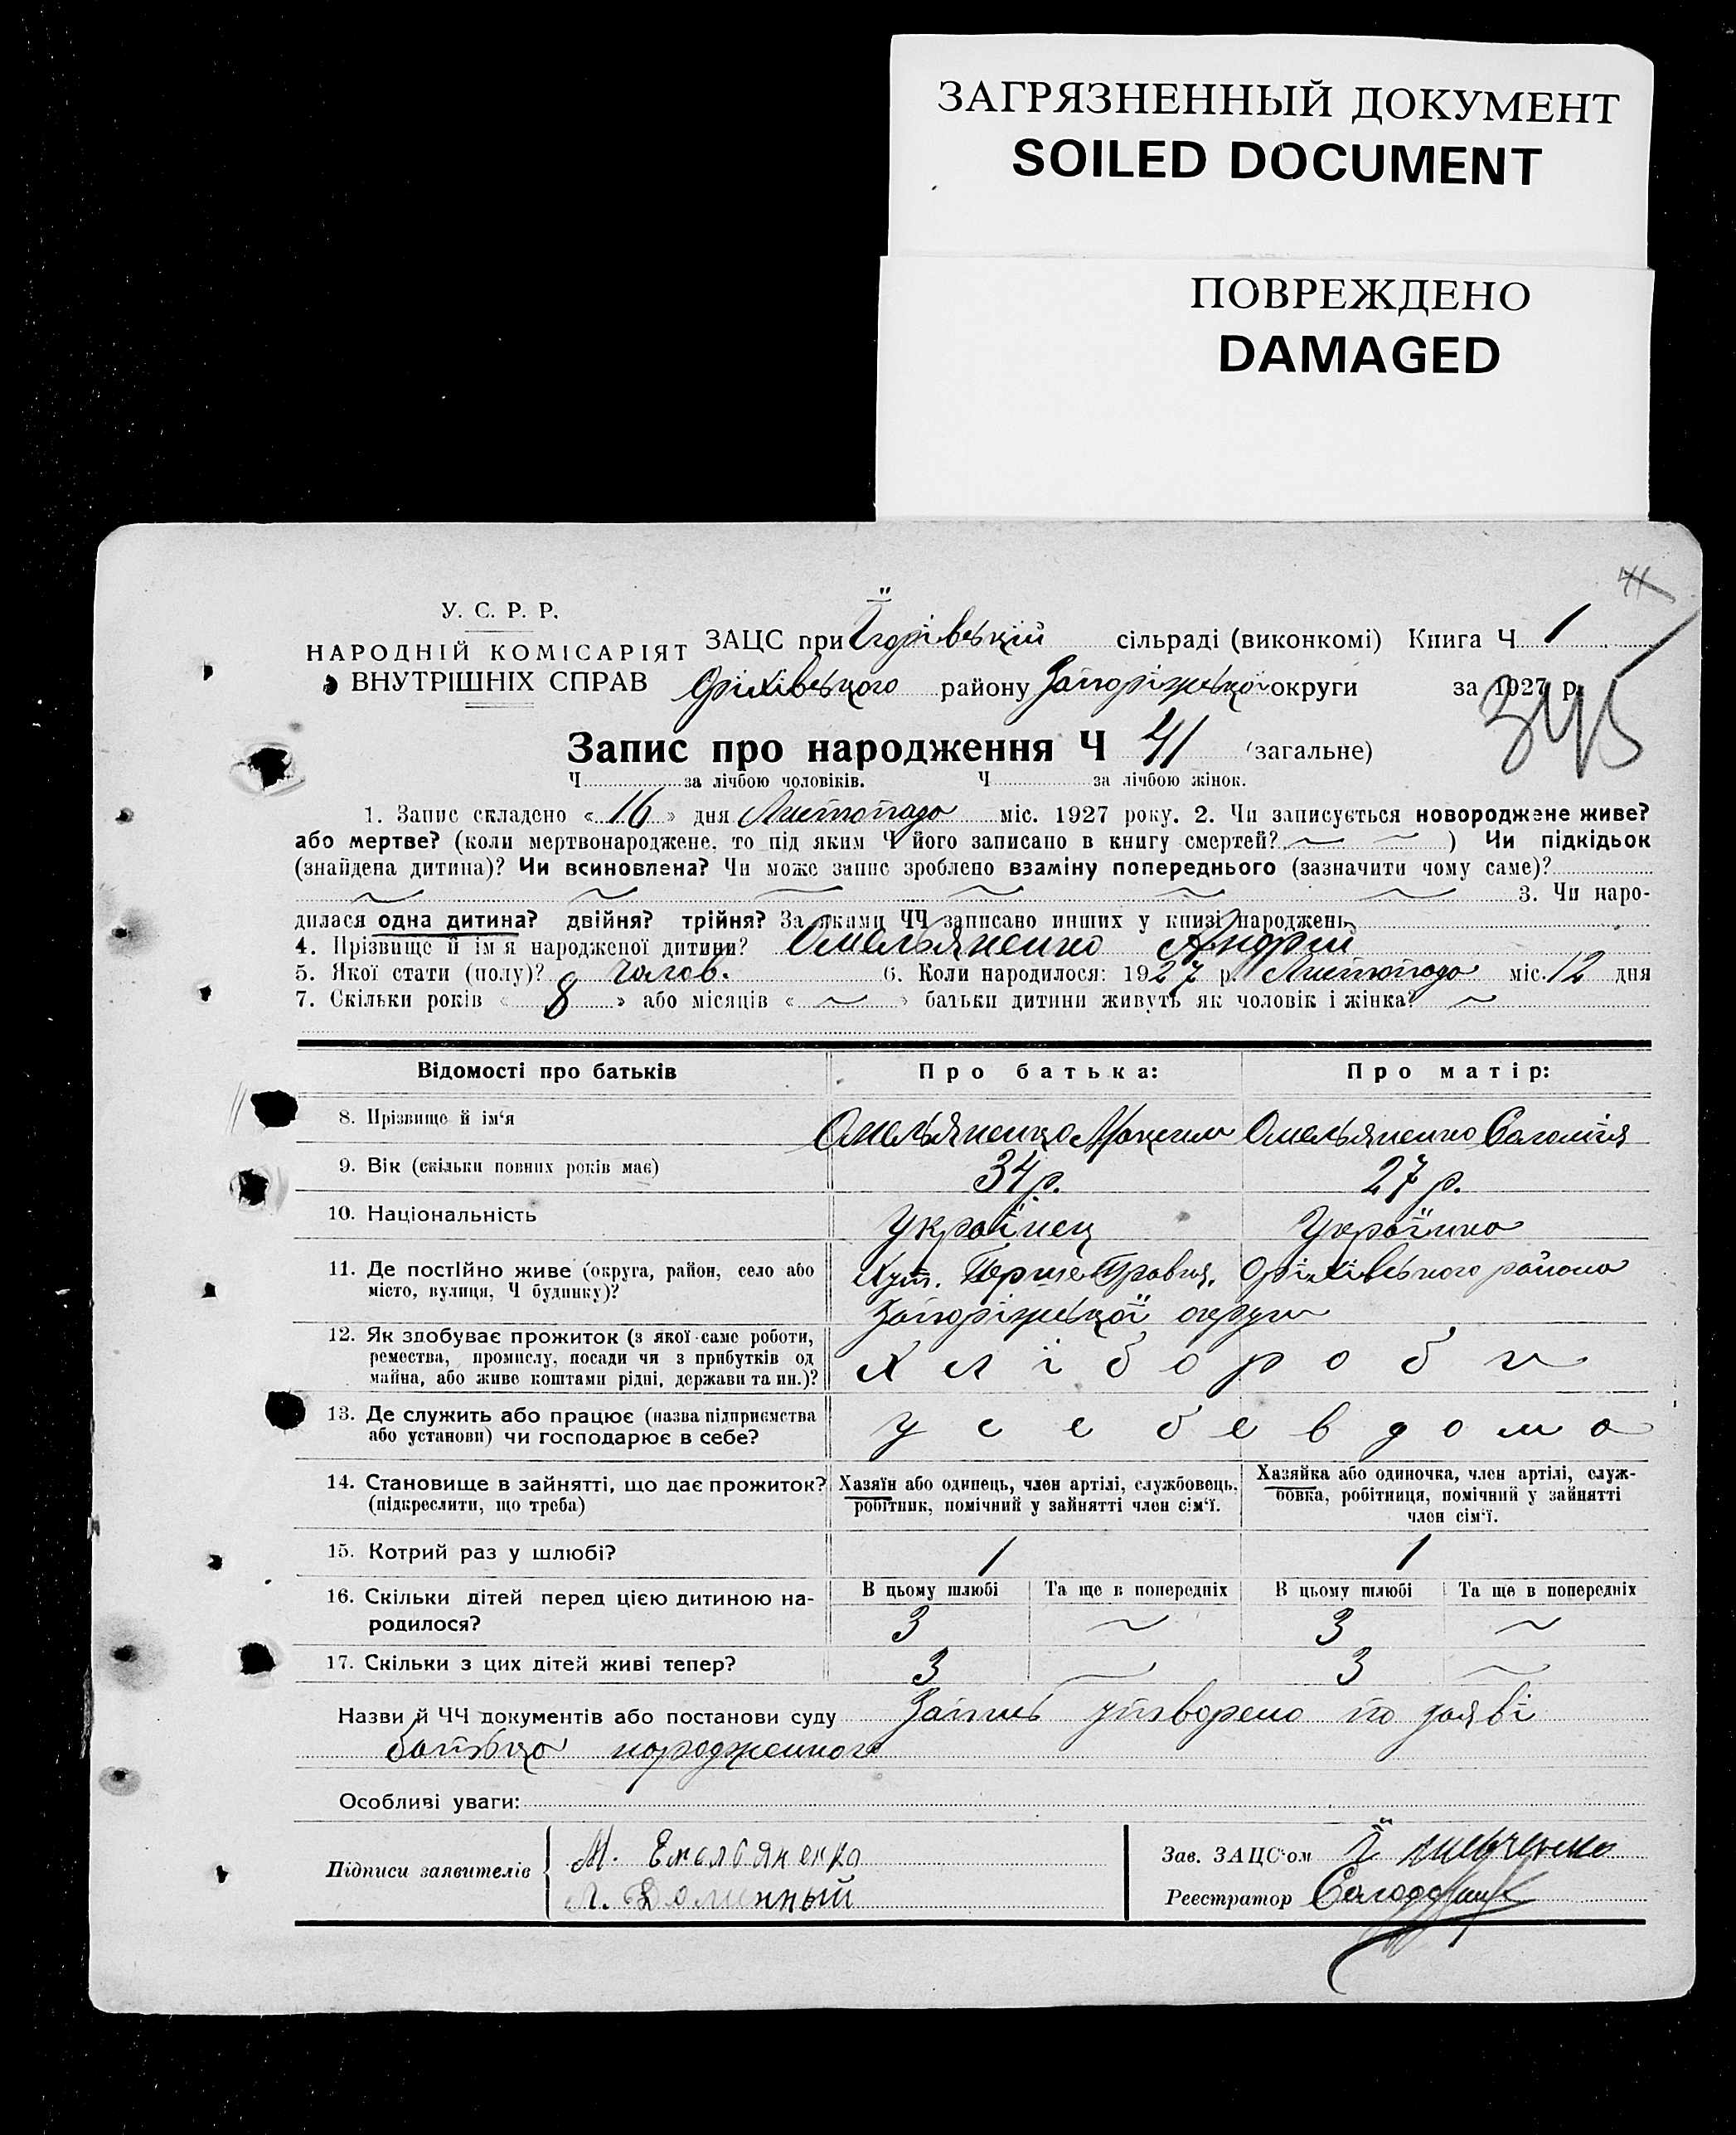 ЗАГРЯЗНЕННЫЙ ДОКУМЕНТ
SOILED DOCUMENT
ПОВРЕЖДЕНО
DAMAGED
41
У. С. Р. Р.
НАРОДНІЙ КОМІСАРІЯТ
ВНУТРІШНІХ СПРАВ
ЗАЦС при сільраді (виконкомі) Книга Ч 1
Оріхівського району Запоріжської округи за 1927 р.
345
Запис про народження Ч 41 (загальне)
Ч за лічбою чоловіків. Ч за лічбою жінок.
1. Запис складено « 16 » дня Листопада міс. 1927 року. 2. Чи записується новороджене живе?
або мертве? (коли мертвонароджене, то під яким Ч його записано в книгу смертей? ~ ~ ) Чи підкідьок
(знайдена дитина)? Чи всиновлена? Чи може запис зроблено взаміну попереднього (зазначити чому саме)?
~ ~ ~ ~ ~ ~ 3. Чи наро-
дилася одна дитина? двійня? трійня? За якими ЧЧ записано инших у книзі народжень
4. Прізвище й ім'я народженої дитини? Омельяненко Андрій
5. Якої стати (полу)? чолов. 6. Коли народилося: 1927 р. Листопада міс. 12 дня
7. Скільки років « 8 » або місяців « ~ » батьки дитини живуть як чоловік і жінка? ~
Відомості про батьків Про батька: Про матір:
8. Прізвище й ім'я Омельяненко Максим Омельяненко Соломія
9. Вік (скільки повних років має) 34 р. 27 р.
10. Національність Українец Українка
11. Де постійно живе (округа, район, село або місто, вулиця, Ч будинку)? Хут. Перше Травня, Оріхівського района
Запоріжської округи
12. Як здобуває прожиток (з якої саме роботи,
ремества, промислу, посади чи з прибутків од
майна, або живе коштами рідні, держави та ин.)? Хлібороби
13. Де служить або працює (назва підприємства
або установи) чи господарює в себе? у себе вдома
14. Становище в зайнятті, що дає прожиток?
(підкреслити, що треба)
Хазяїн або одинець, член артілі, службовець,
робітник, помічний у зайнятті член сім'ї.
Хазяйка або одиночка, член артілі, служ-
бовка, робітниця, помічний у зайнятті
член сім'ї.
15. Котрий раз у шлюбі? 1 1
16. Скільки дітей перед цією дитиною на-
родилося?
В цьому шлюбі Та ще в попередніх В цьому шлюбі Та ще в попередніх
3 ~ 3 ~
17. Скільки з цих дітей живі тепер? 3 ~ 3 ~
Назви й ЧЧ документів або постанови суду Запись утворено по заяві
батька народженного
Особливі уваги:
Підписи заявителів М. Емельяненко
Зав. ЗАЦС'ом
Реестратор